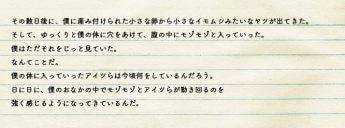 その数日後に、僕に産み付けられた小さな卵から小さなイモムシみたいなヤツが出てきた。
そして、ゆっくりと僕の体に穴をあけて、腹の中にモゾモゾと入っていった。
僕はただそれをじっと見ていた。
なんてことだ。
僕の体に入っていったアイツらは今頃何をしているんだろう。
日に日に、僕のおなかの中でモゾモゾとアイツらが動き回るのを
強く感じるようになってきているんだ。